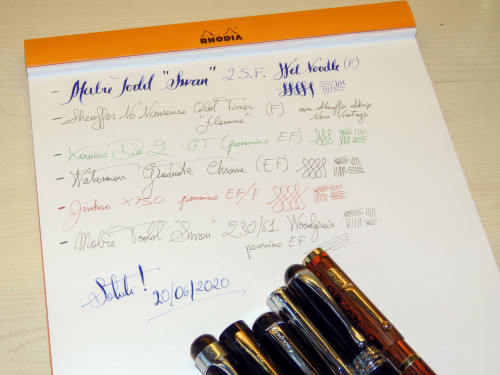 RHODIA
- Mabie Todd "Swan" 2 S.F. Wet Noodle (F)
- Sheaffer No Nonsense Old Timer (F) con Sheaffer Skrip
"Flamme" Nero Vintage
- Kaweco Dia 2 - GT (pennino EF)
- Waterman Graduate Chrome (EF)
- Jinhao X750 pennino EF/F
- Mabie Todd "Swan" 230/61 Woodgrain
pennino EF
Saluti!
20/06/2020